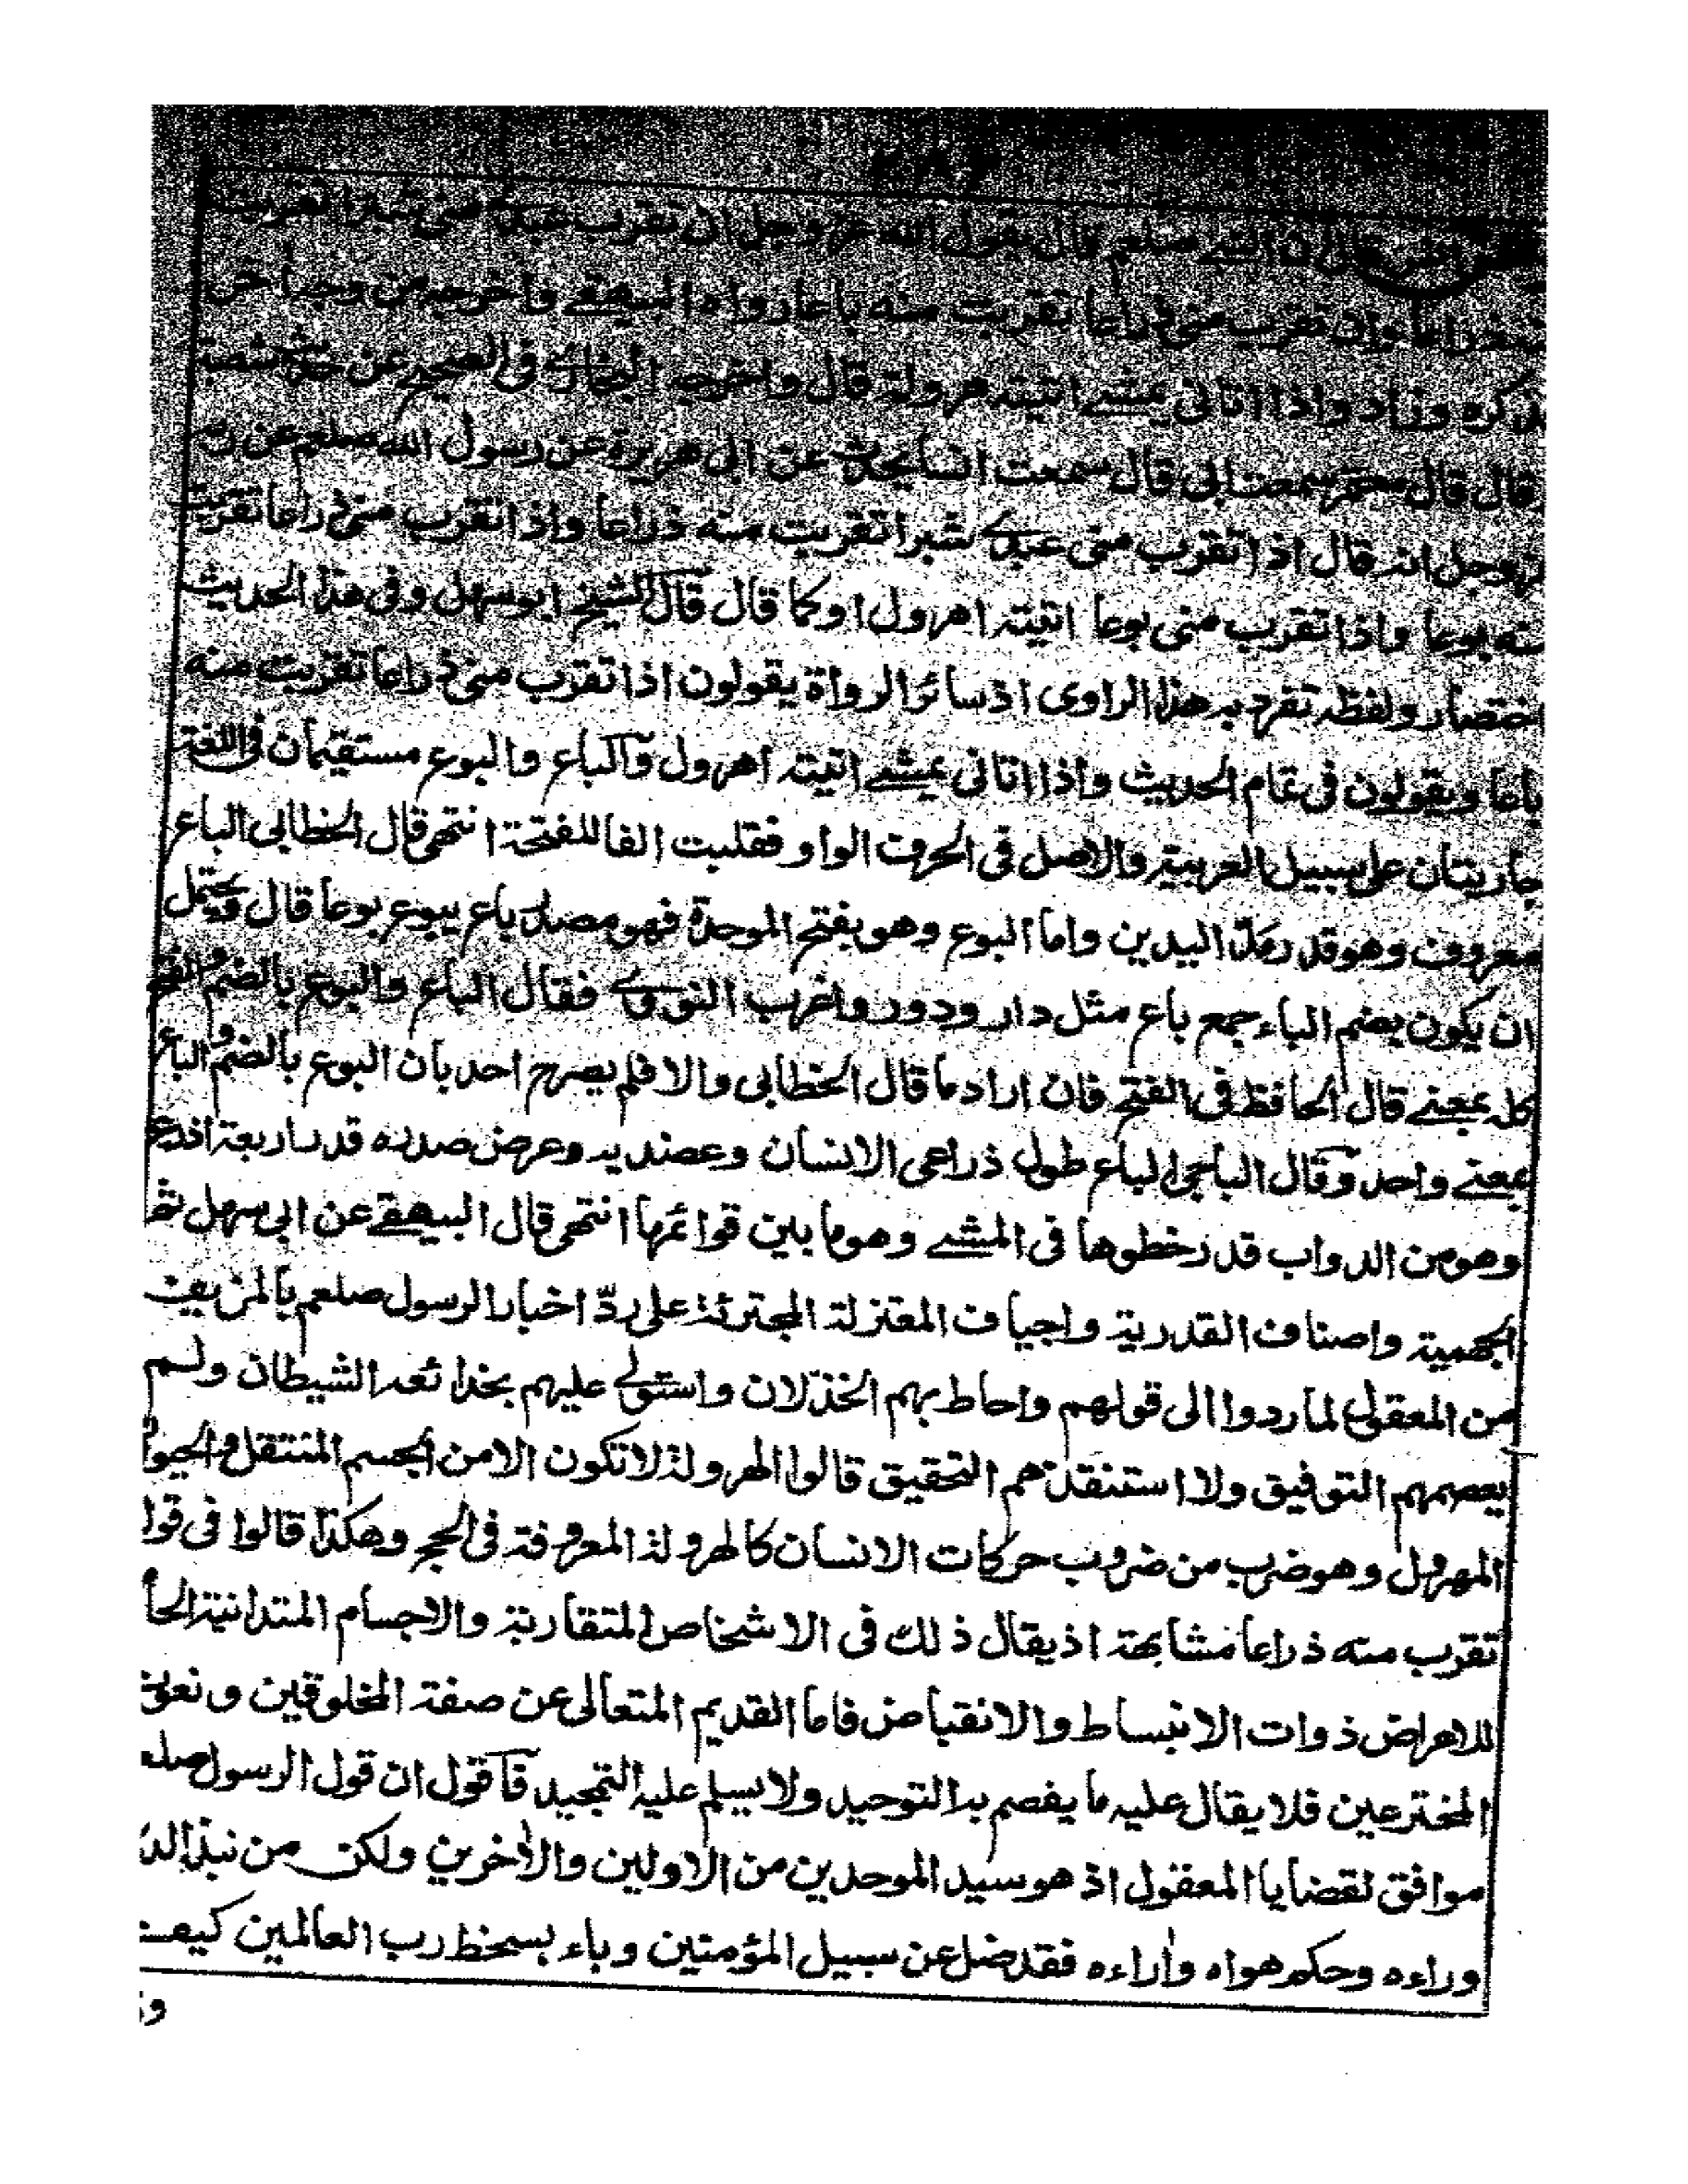 ان النبي صلعم قال يقول الله عز وجل ان تقرب عبدي مني شبرا تقربت
منه ذراعا وان تقرب مني ذراعا تقربت منه باعا رواه البيهقي واخرجه من وجه اخر
ذكره وزاد واذا اتاني يمشي اتيته هرولة قال واخرجه البخاري في الصحيح عن
قال قال معتمر سمعت ابي قال سمعت انسا يحدث عن ابي هريرة عن رسول الله صلعم عن ربه
عز وجل انه قال اذا تقرب مني عبدي شبرا تقربت منه ذراعا واذا تقرب مني ذراعا تقربت
منه بوعا واذا تقرب مني بوعا اتيته اهرول او كما قال قال الشيخ ابو سهل وفي هذا الحديث
اختصار ولفظه تفرد به هذا الراوى اذ سائر الرواة يقولون اذا تقرب مني ذراعا تقربت منه
باعا ويقولون في تمام الحديث واذا اتاني يمشي اتيته اهرول والباع والبوع مستقيمان في اللغة
جاريتان على سبيل العربية والاصل في الحرف الواو فقلبت الفا للفتحة انتهى قال الخطابي الباع
معروف وهو قدر مد اليدين واما البوع وهو بفتح الموحدة فهو مصدر باع يبوع بوعا قال ويحتمل
ان يكون بضم الباء جمع باع مثل دار ودور واغرب النووي فقال الباع والبوع بالضم والفتح
كله بمعنى قال الحافظ في الفتح فان اراد ما قال الخطابي والا فلم يصرح احد بان البوع بالضم والباع
بمعنى واحد وقال الباجي الباع طول ذراعي الانسان وعضديه وعرض صدره قدر اربعة اذرع
وهو من الدواب قدر خطوها في المشي وهو ما بين قوائمها انتهى قال البيهقي عن ابي سهل
الجهمية واصناف القدرية واجياف المعتزلة المجترئة على رد اخبار الرسول صلعم بالمزيف
من المعقول لما ردوا الى قولهم واحاط بهم الخذلان واستولى عليهم بخدائعه الشيطان ولم
يعصمهم التوفيق ولا استنقذهم التحقيق قالوا الهرولة لا تكون الا من الجسم المنتقل والحيوان
المهرول وهو ضرب من ضروب حركات الانسان كالهرولة المعروفة في الحج وهكذا قالوا في قوله
تقرب منه ذراعا مشابهة اذ يقال ذلك في الاشخاص المتقاربة والاجسام المتدانية الحا
للاعراض ذوات الانبساط والانقباض فاما القديم المتعالى عن صفة المخلوقين و
المخترعين فلا يقال عليه ما يفصم به التوحيد ولا يسلم عليه التمجيد فاقول ان قول الرسول صلعم
موافق لقضايا المعقول اذ هو سيد الموحدين من الاولين والأخرين ولكن من نبذ الد
وراءه وحكم هواه وأراءه فقد ضل عن سبيل المؤمنين وباء بسخط رب العالمين كيف